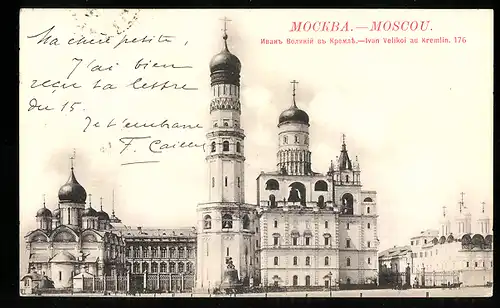 МОСКВА.—MOSCOU.
Иванъ Великій въ Кремлѣ.—Ivan Velikoi au Kremlin. 176
Ma chère petite,
J'ai bien
reçu ta lettre
du 15.
Je t'embrasse
F. Cailly